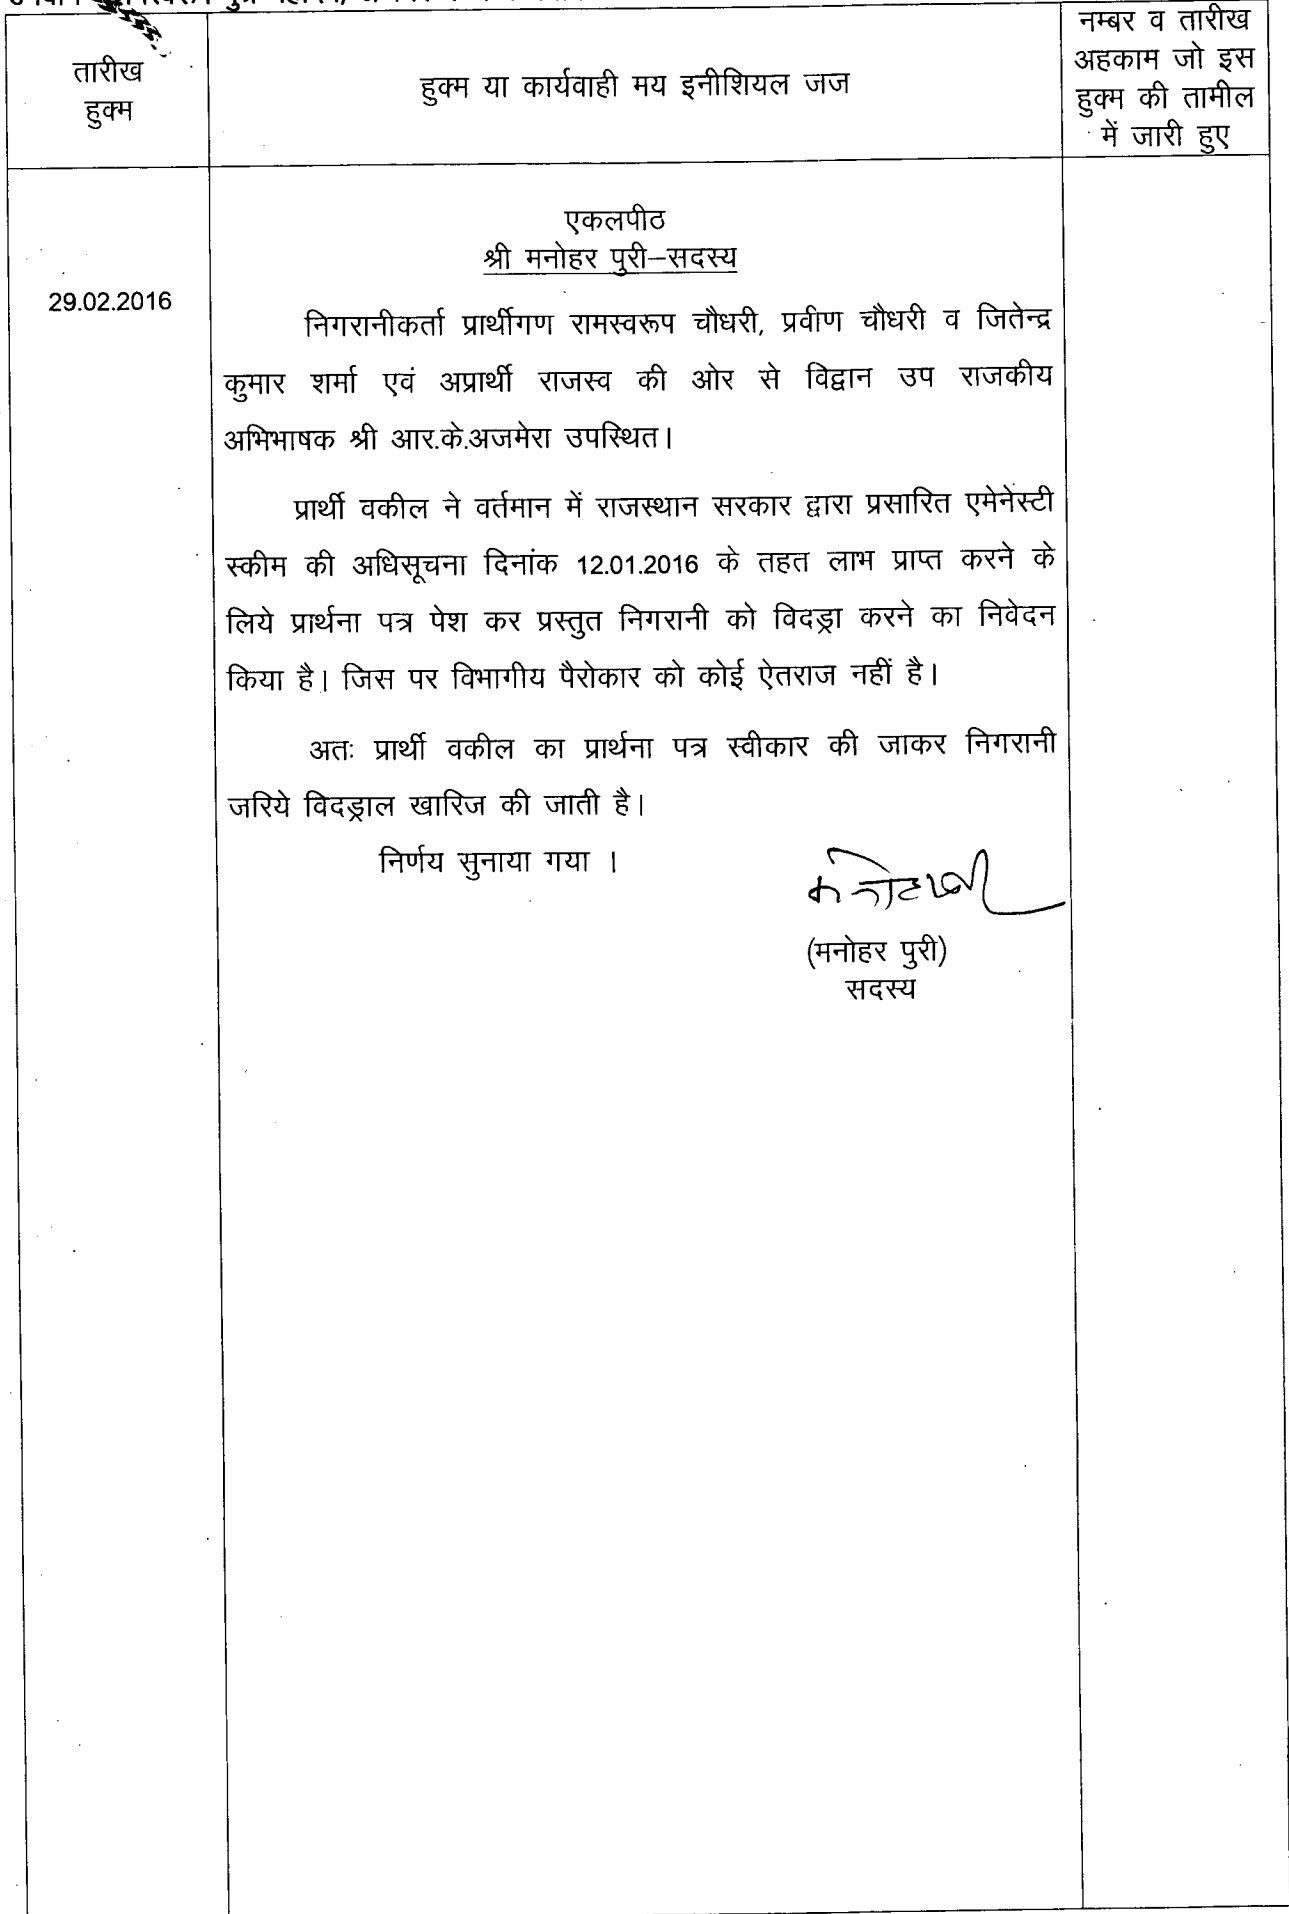 तारीख
हुक्म
हुक्म या कार्यवाही मय इनीशियल जज
नम्बर व तारीख
अहकाम जो इस
हुक्म की तामील
में जारी हुए
एकलपीठ
श्री मनोहर पुरी–सदस्य
29.02.2016
निगरानीकर्ता प्रार्थीगण रामस्वरूप चौधरी, प्रवीण चौधरी व जितेन्द्र
कुमार शर्मा एवं अप्रार्थी राजस्व की ओर से विद्वान उप राजकीय
अभिभाषक श्री आर.के.अजमेरा उपस्थित।
प्रार्थी वकील ने वर्तमान में राजस्थान सरकार द्वारा प्रसारित एमेनेस्टी
स्कीम की अधिसूचना दिनांक 12.01.2016 के तहत लाभ प्राप्त करने के
लिये प्रार्थना पत्र पेश कर प्रस्तुत निगरानी को विदड्रा करने का निवेदन
किया है। जिस पर विभागीय पैरोकार को कोई ऐतराज नहीं है।
अतः प्रार्थी वकील का प्रार्थना पत्र स्वीकार की जाकर निगरानी
जरिये विदड्राल खारिज की जाती है।
निर्णय सुनाया गया ।
(मनोहर पुरी)
सदस्य